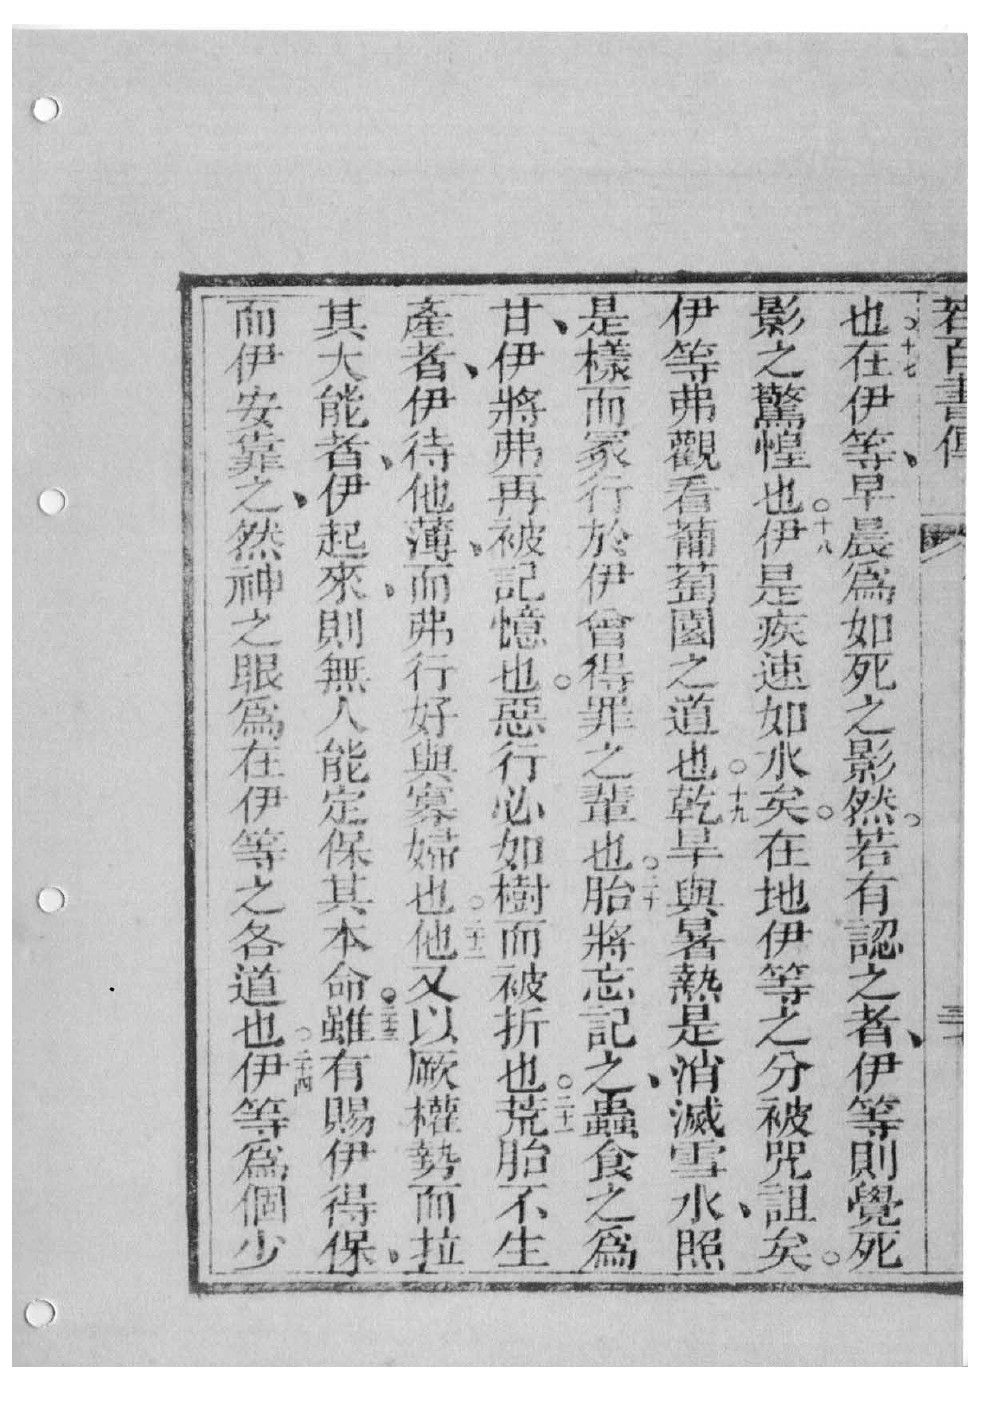 若百書傳
也。十七在伊等、早晨爲如死之影然。若有認之者、伊等則覺死
影之驚惶也。十八伊是疾速如水矣。在地伊等之分被咒詛矣。
伊等弗觀看葡萄園之道也。十九乾旱與暑熱是消滅雪水、照
是樣而冢行於伊曾得罪之輩也。二十胎將忘記之、蟲食之爲
甘、伊將弗再被記憶也。惡行必如樹而被折也。二十一荒胎不生
產者、伊待他薄、而弗行好與寡婦也。二十二他又以厥權勢而拉
其大能者、伊起來、則無人能定保其本命。二十三雖有賜伊得保、
而伊安靠之、然神之眼爲在伊等之各道也。二十四伊等爲個少